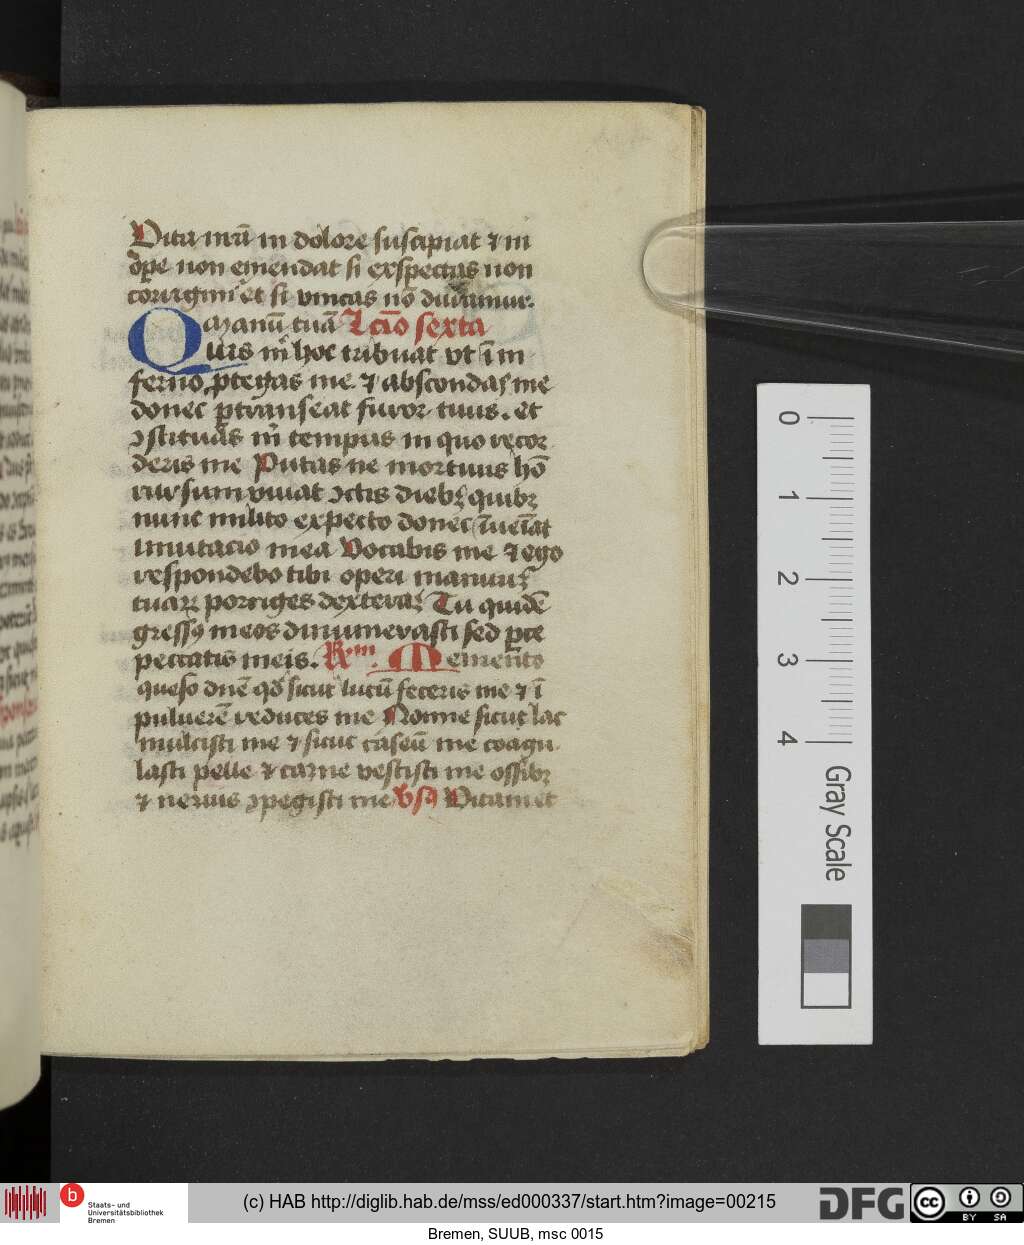 Vita nr̄a in dolore suscipiat ⁊ in
oꝑe non emendat si exspectas non
corrigim᷒ et si vincas nō duramur.
Manū tuā Lcīo sexta
Quis m̄ hoc tribuat vt ī in
ferno ꝓtegas me ⁊ abscondas me
donec ꝑtranseat furor tuus. et
ꝯstituas m̄ tempus in quo recor
deris me Putas ne mortuus hō
rursum viuat ꝯctis diebꝫ quibꝫ
nunc milito expecto donec īueīat
īmutacio mea Vocabis me ⁊ ego
respondebo tibi operi manuuꝫ
tuaꝝ porriges dexteraꝫ Tu quidē
gressꝰ meos dinumerasti sed ꝑce
peccatis meis. Rm. Memento
queso dn̄e qd̄ sicut lutū feceris me ⁊ ī
puluerē reduces me Nonne sicut lac
mulcisti me ⁊ sicut caseū me coagu
lasti pelle ⁊ carne vestisti me ossibꝫ
⁊ neruis ꝯpegisti me Vsꝰ Vitam et
0
1
2
3
4
Gray Scale
b Staats- und
Universitätsbibliothek
Bremen
(c) HAB http://diglib.hab.de/mss/ed000337/start.htm?image=00215
DFG
cc BY SA
Bremen, SUUB, msc 0015